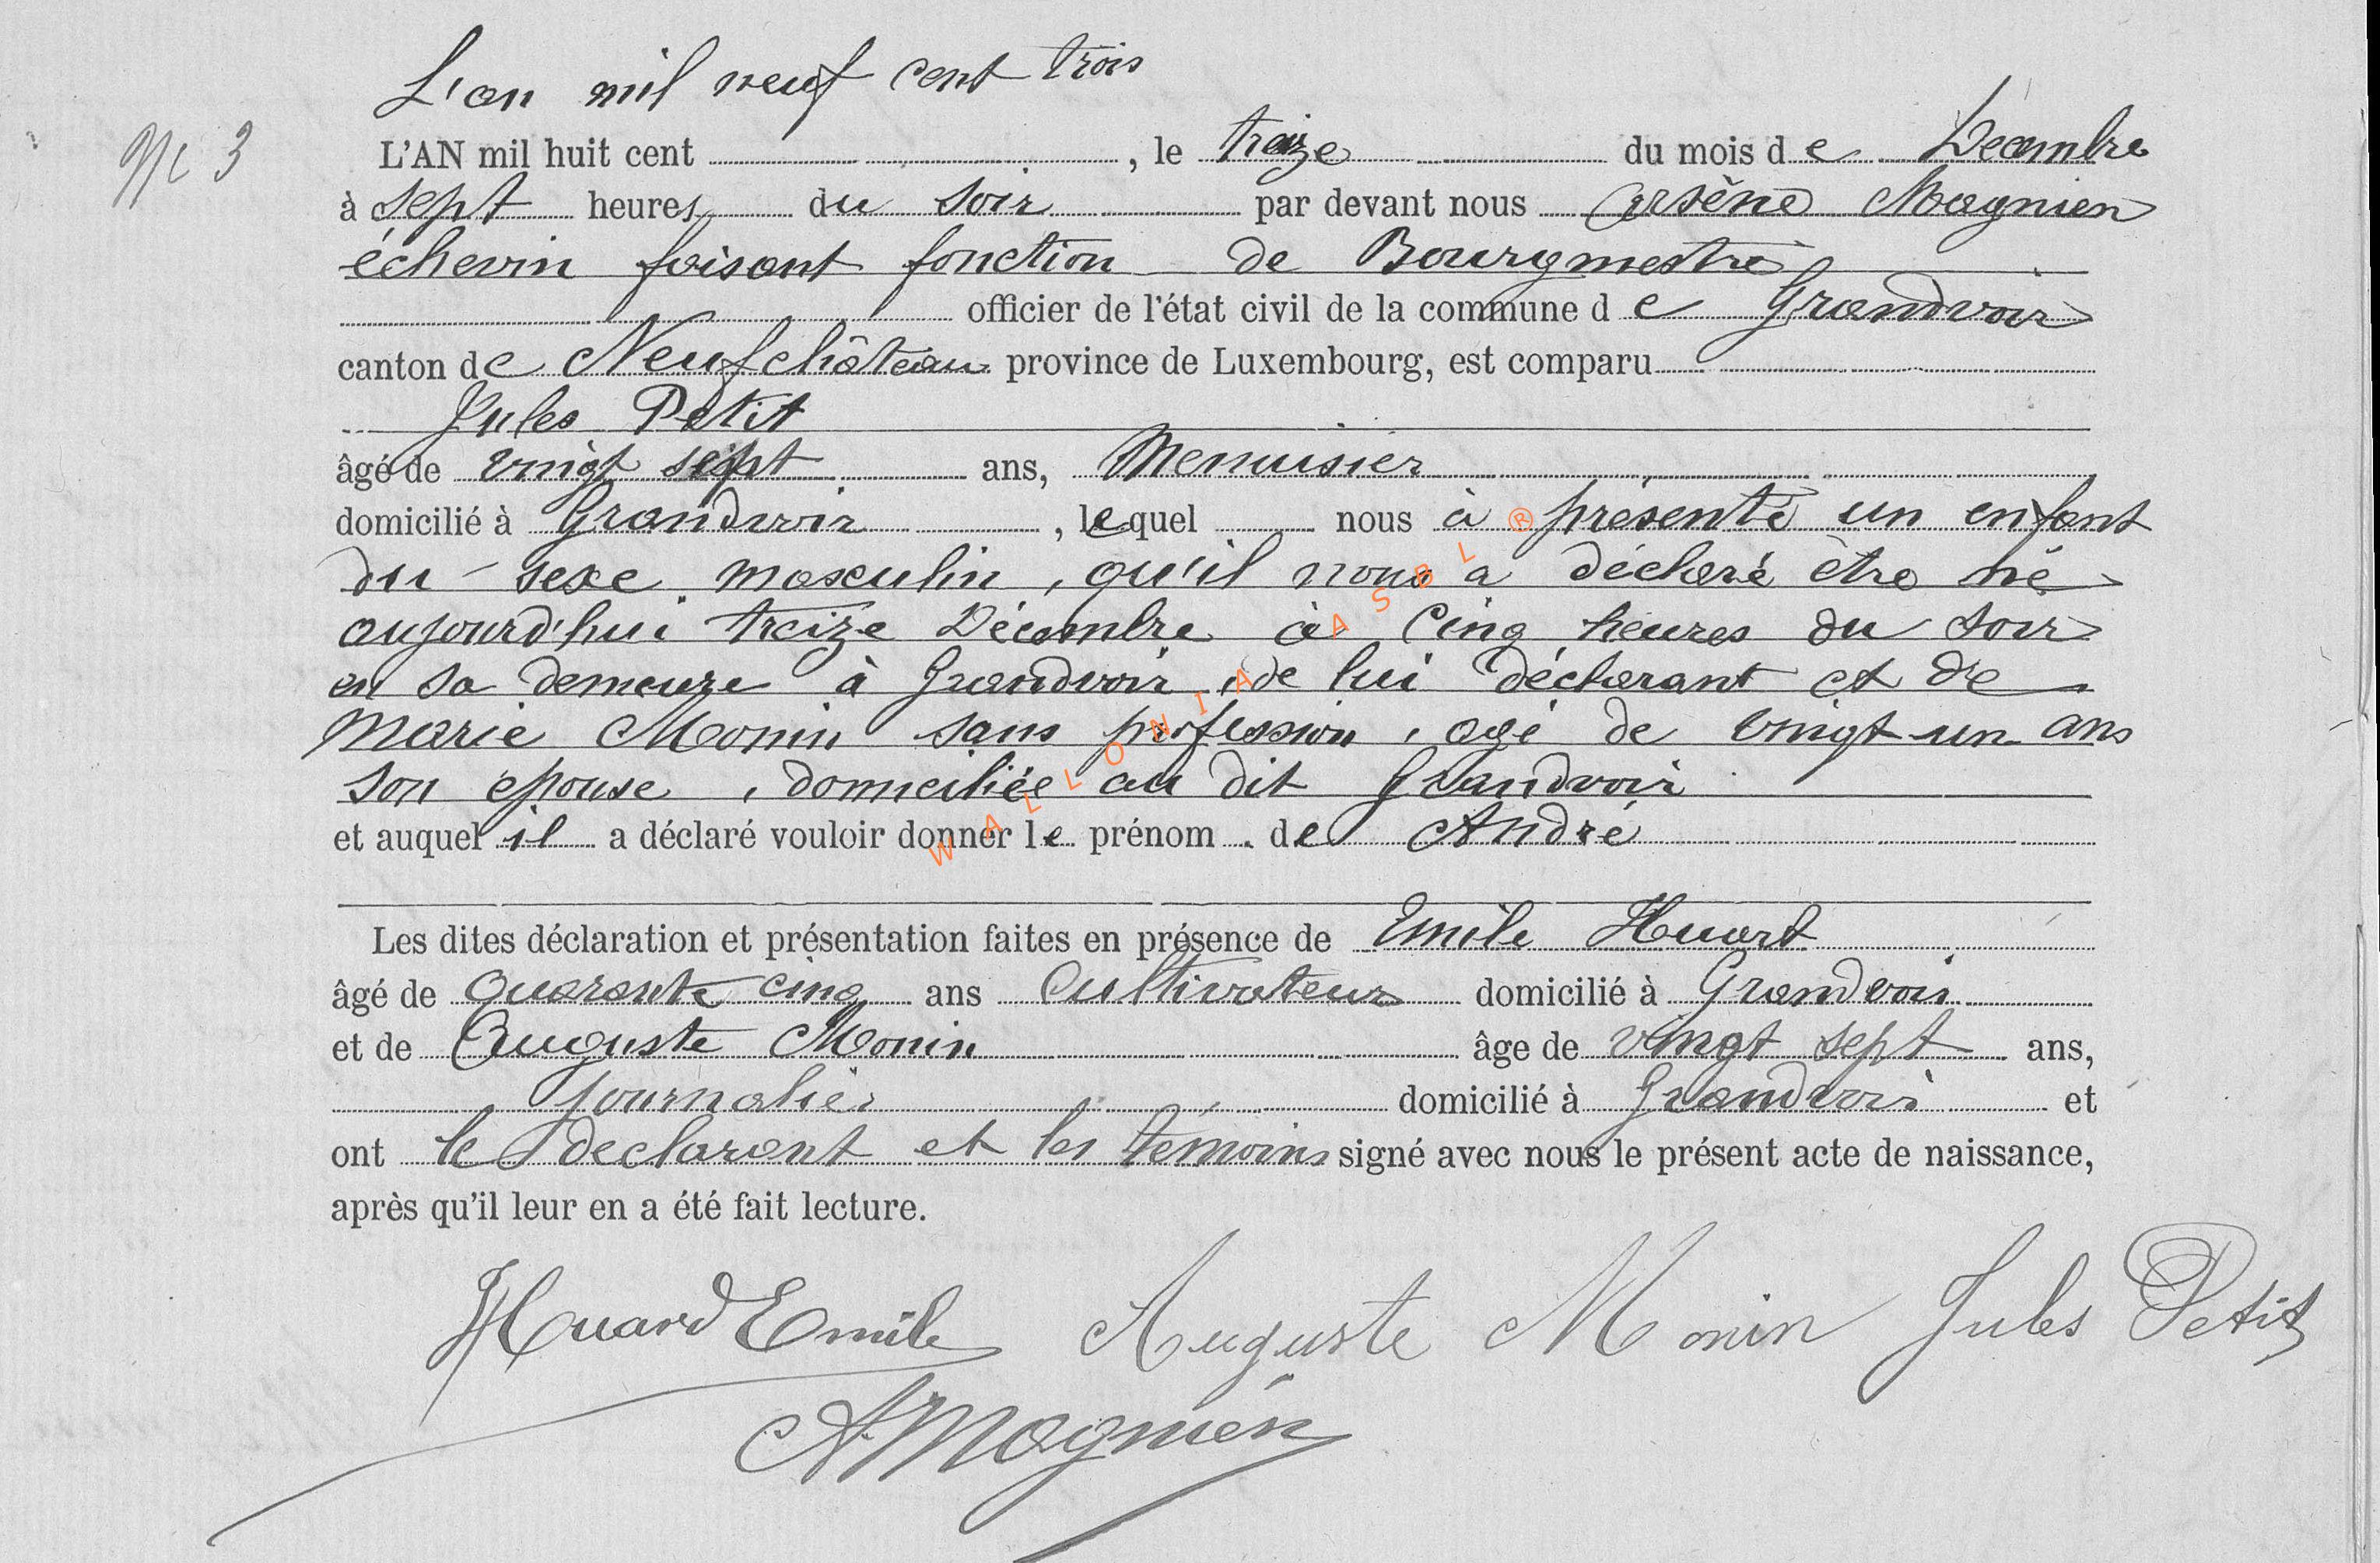 L'an mil neuf cent trois
N° 3
L'AN mil huit cent , le treize du mois de Décembre
à sept heures du soir par devant nous Arsène Magnien
échevin faisant fonction de Bourgmestre
officier de l'état civil de la commune de Grandvoir
canton de Neufchâteau province de Luxembourg, est comparu
Jules Petit
âgé de vingt sept ans, Menuisier
domicilié à Grandvoir , lequel nous à présenté un enfant
du sexe masculin, qu'il nous a déclaré être né
aujourd'hui treize Décembre à Cinq heures du soir
en sa demeure à Grandvoir, de lui déclarant et de
Marie Monin sans profession, agé de vingt-un ans
son epouse, domiciliée au dit Grandvoir
et auquel il a déclaré vouloir donner le prénom de André
Les dites déclaration et présentation faites en présence de Emile Huart
âgé de Quarante cinq ans Cultivateur domicilié à Grandvoir
et de Auguste Monin âge de vingt sept ans,
journalier domicilié à Grandvoir et
ont le declarant et les témoins signé avec nous le présent acte de naissance,
après qu'il leur en a été fait lecture.
Huard Emile Auguste Monin Jules Petit
A Magnien
WALLONIA ASBL ®